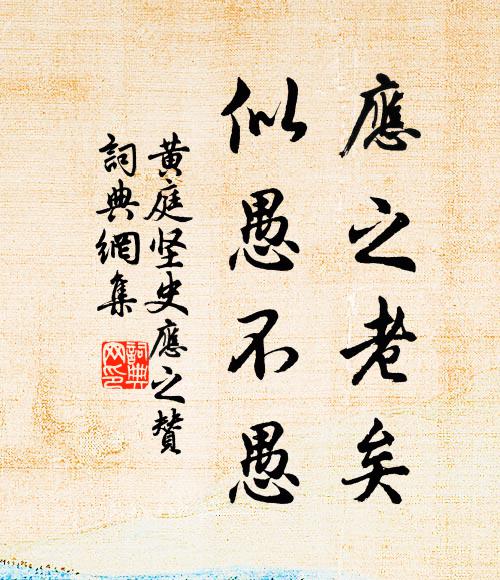 應之老矣
似愚不愚
黃庭坚史應之贊
詞典網集
詞典
网印